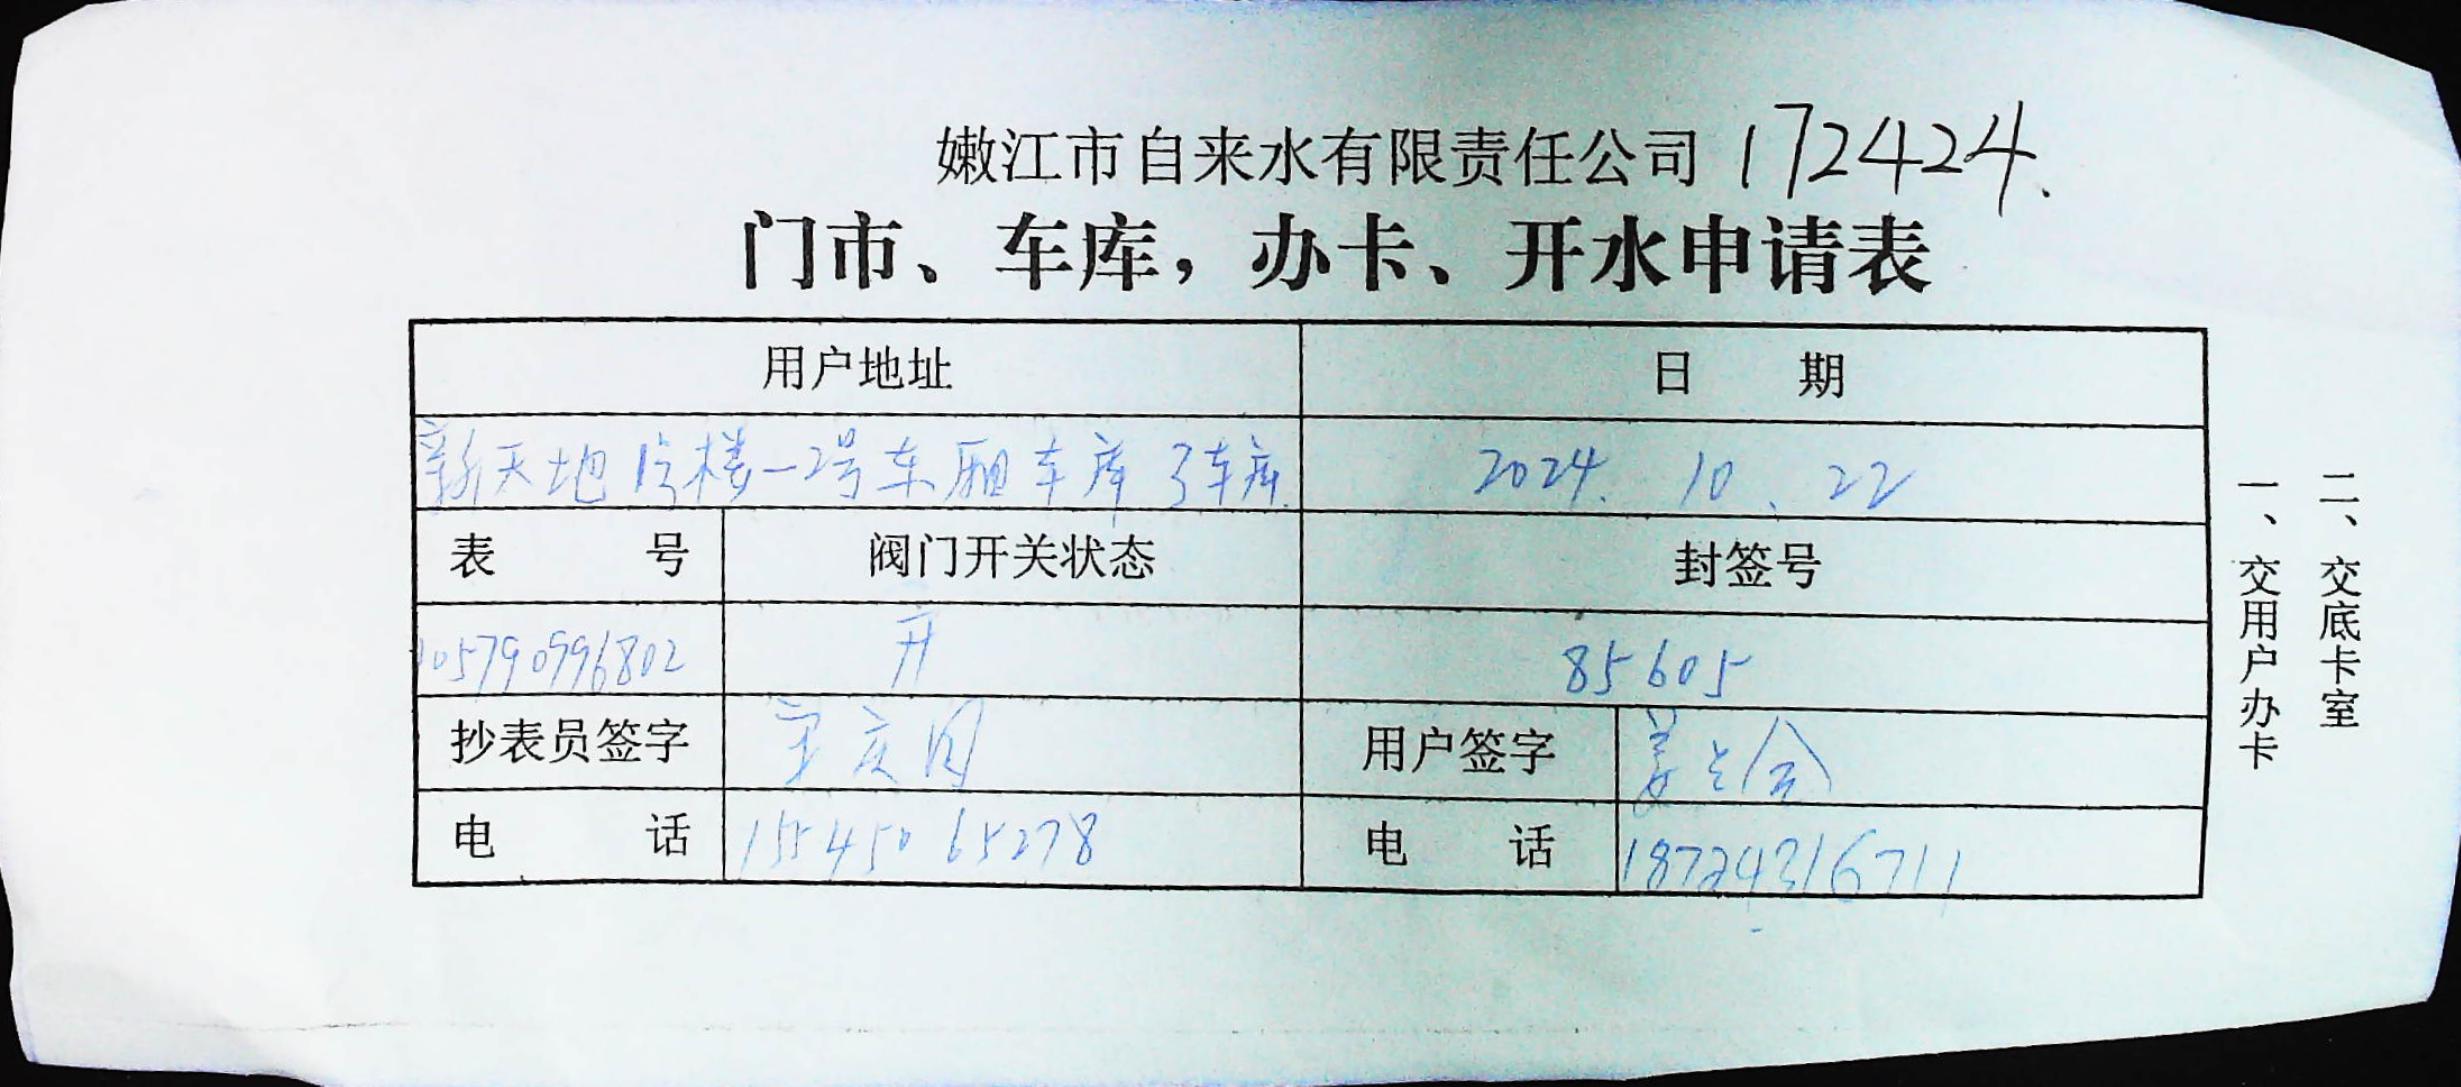 嫩江市自来水有限责任公司 172424.
门市、车库，办卡、开水申请表
用户地址 日 期
新天地 楼一2号车 车库 3车库 2024. 10. 22
表 号 阀门开关状态 封签号
105790996802 开 85605
抄表员签字 用户签字 姜
电 话 15545065278 电 话 18724316711
一、交用户办卡
二、交底卡室